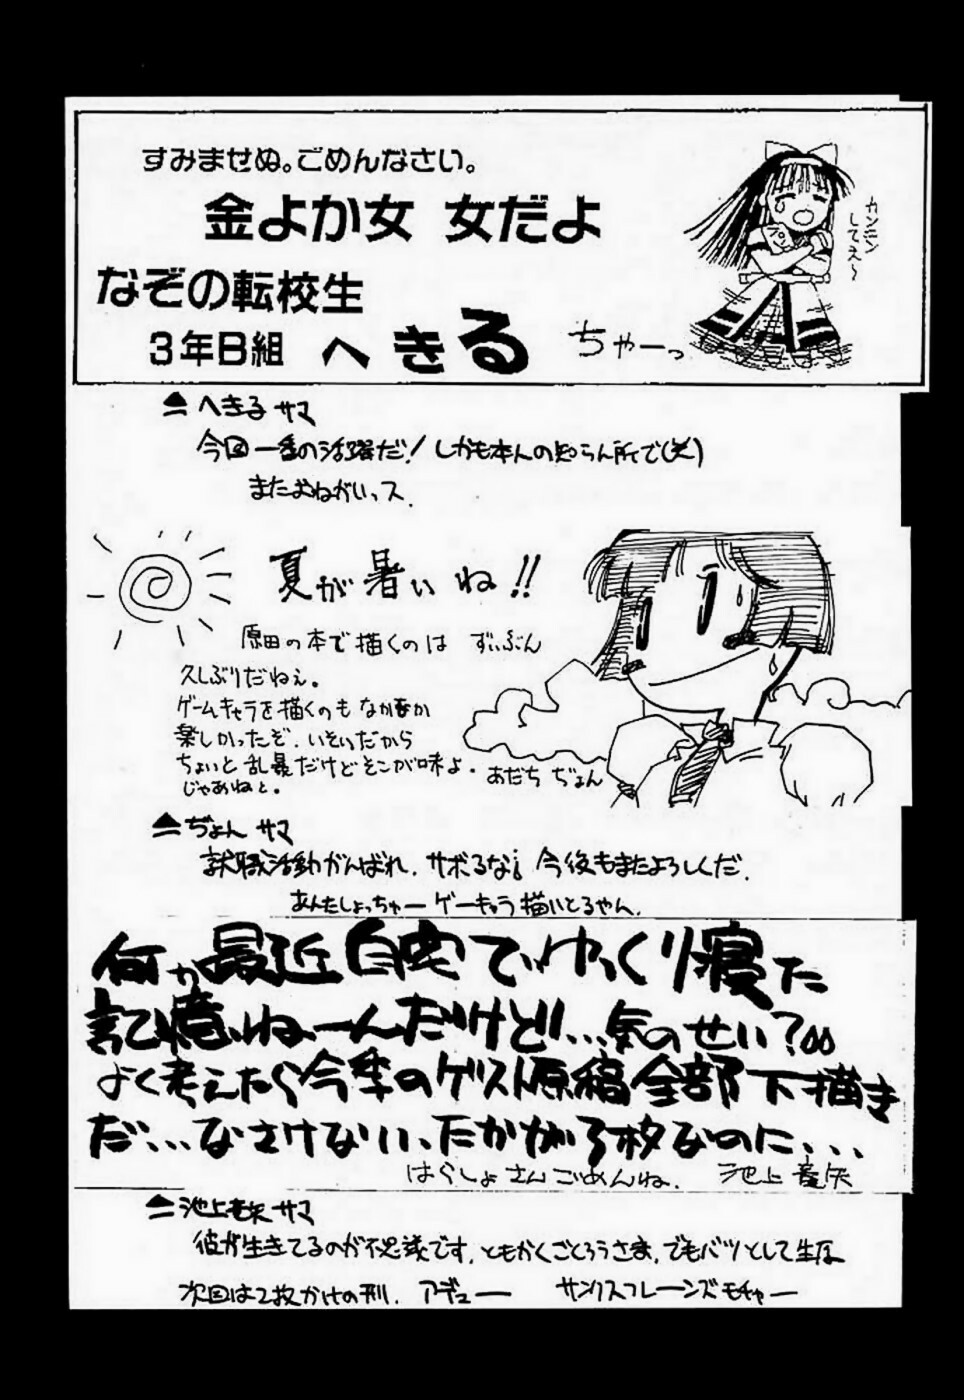 すみませぬ。ごめんなさい。
金よか女 女だよ
なぞの転校生
3年B組 へきる
ちゃーっ
カンニン
してえ〜
へきるサマ
今回一番の活躍だ! しかも本人の知らん所で(笑)
またおねがいっス.
夏が暑いね!!
原田の本で描くのは ずいぶん
久しぶりだねぇ。
ゲームキャラを描くのもなかなか
楽しかったぞ.いそいだから
ちょいと乱暴だけどそこが味よ.
じゃあねと。
あだち ぢょん
ぢょん サマ
就職活動がんばれ.サボるな! 今後もまたよろしくだ.
あんたしょっちゃーゲーキャラ描いとるやん.
何か最近自宅でゆっくり寝た
記憶ねーんだけど!...気のせい?
よく考えたら今季のゲスト原稿全部下描き
だ...なさけない、たかが3枚なのに...
はらしょさんごめんね. 池上竜矢
池上竜矢サマ
彼が生きてるのが不思議です.ともかくごくろうさま.でもバツとして
次回は2枚かけの刑. アデュー サンクスフレーンズモチャー